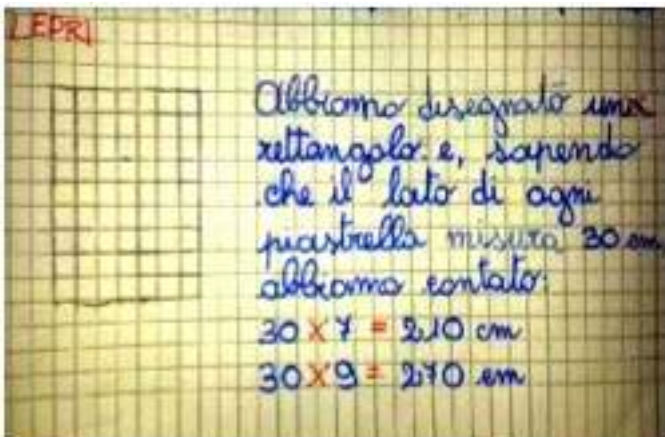 LEPRI
Abbiamo disegnato una
rettangolo e, sapendo
che il lato di ogni
piastrella misura 30 cm,
abbiamo contato:
30 X 7 = 210 cm
30 X 9 = 270 cm